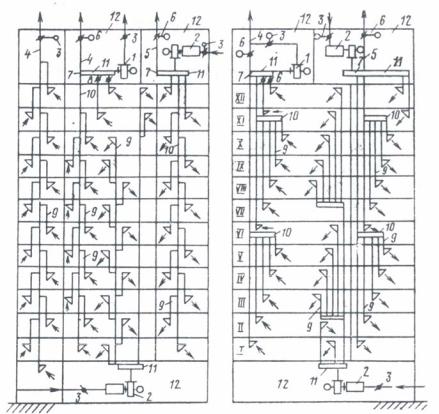 12 6 12
4 3 4 6 3 5 2 3
7 11 1 7 11
10
9 10
9 9 9
9 9
11
3 2 12
6 4 3 12 3 2 6 12
11 1 5 11
7 6
XII
XI 10 10
X
IX 9
VIII
VII
VI 10 10
V 9
IV
III
II 9 9
I
11 2 3
12